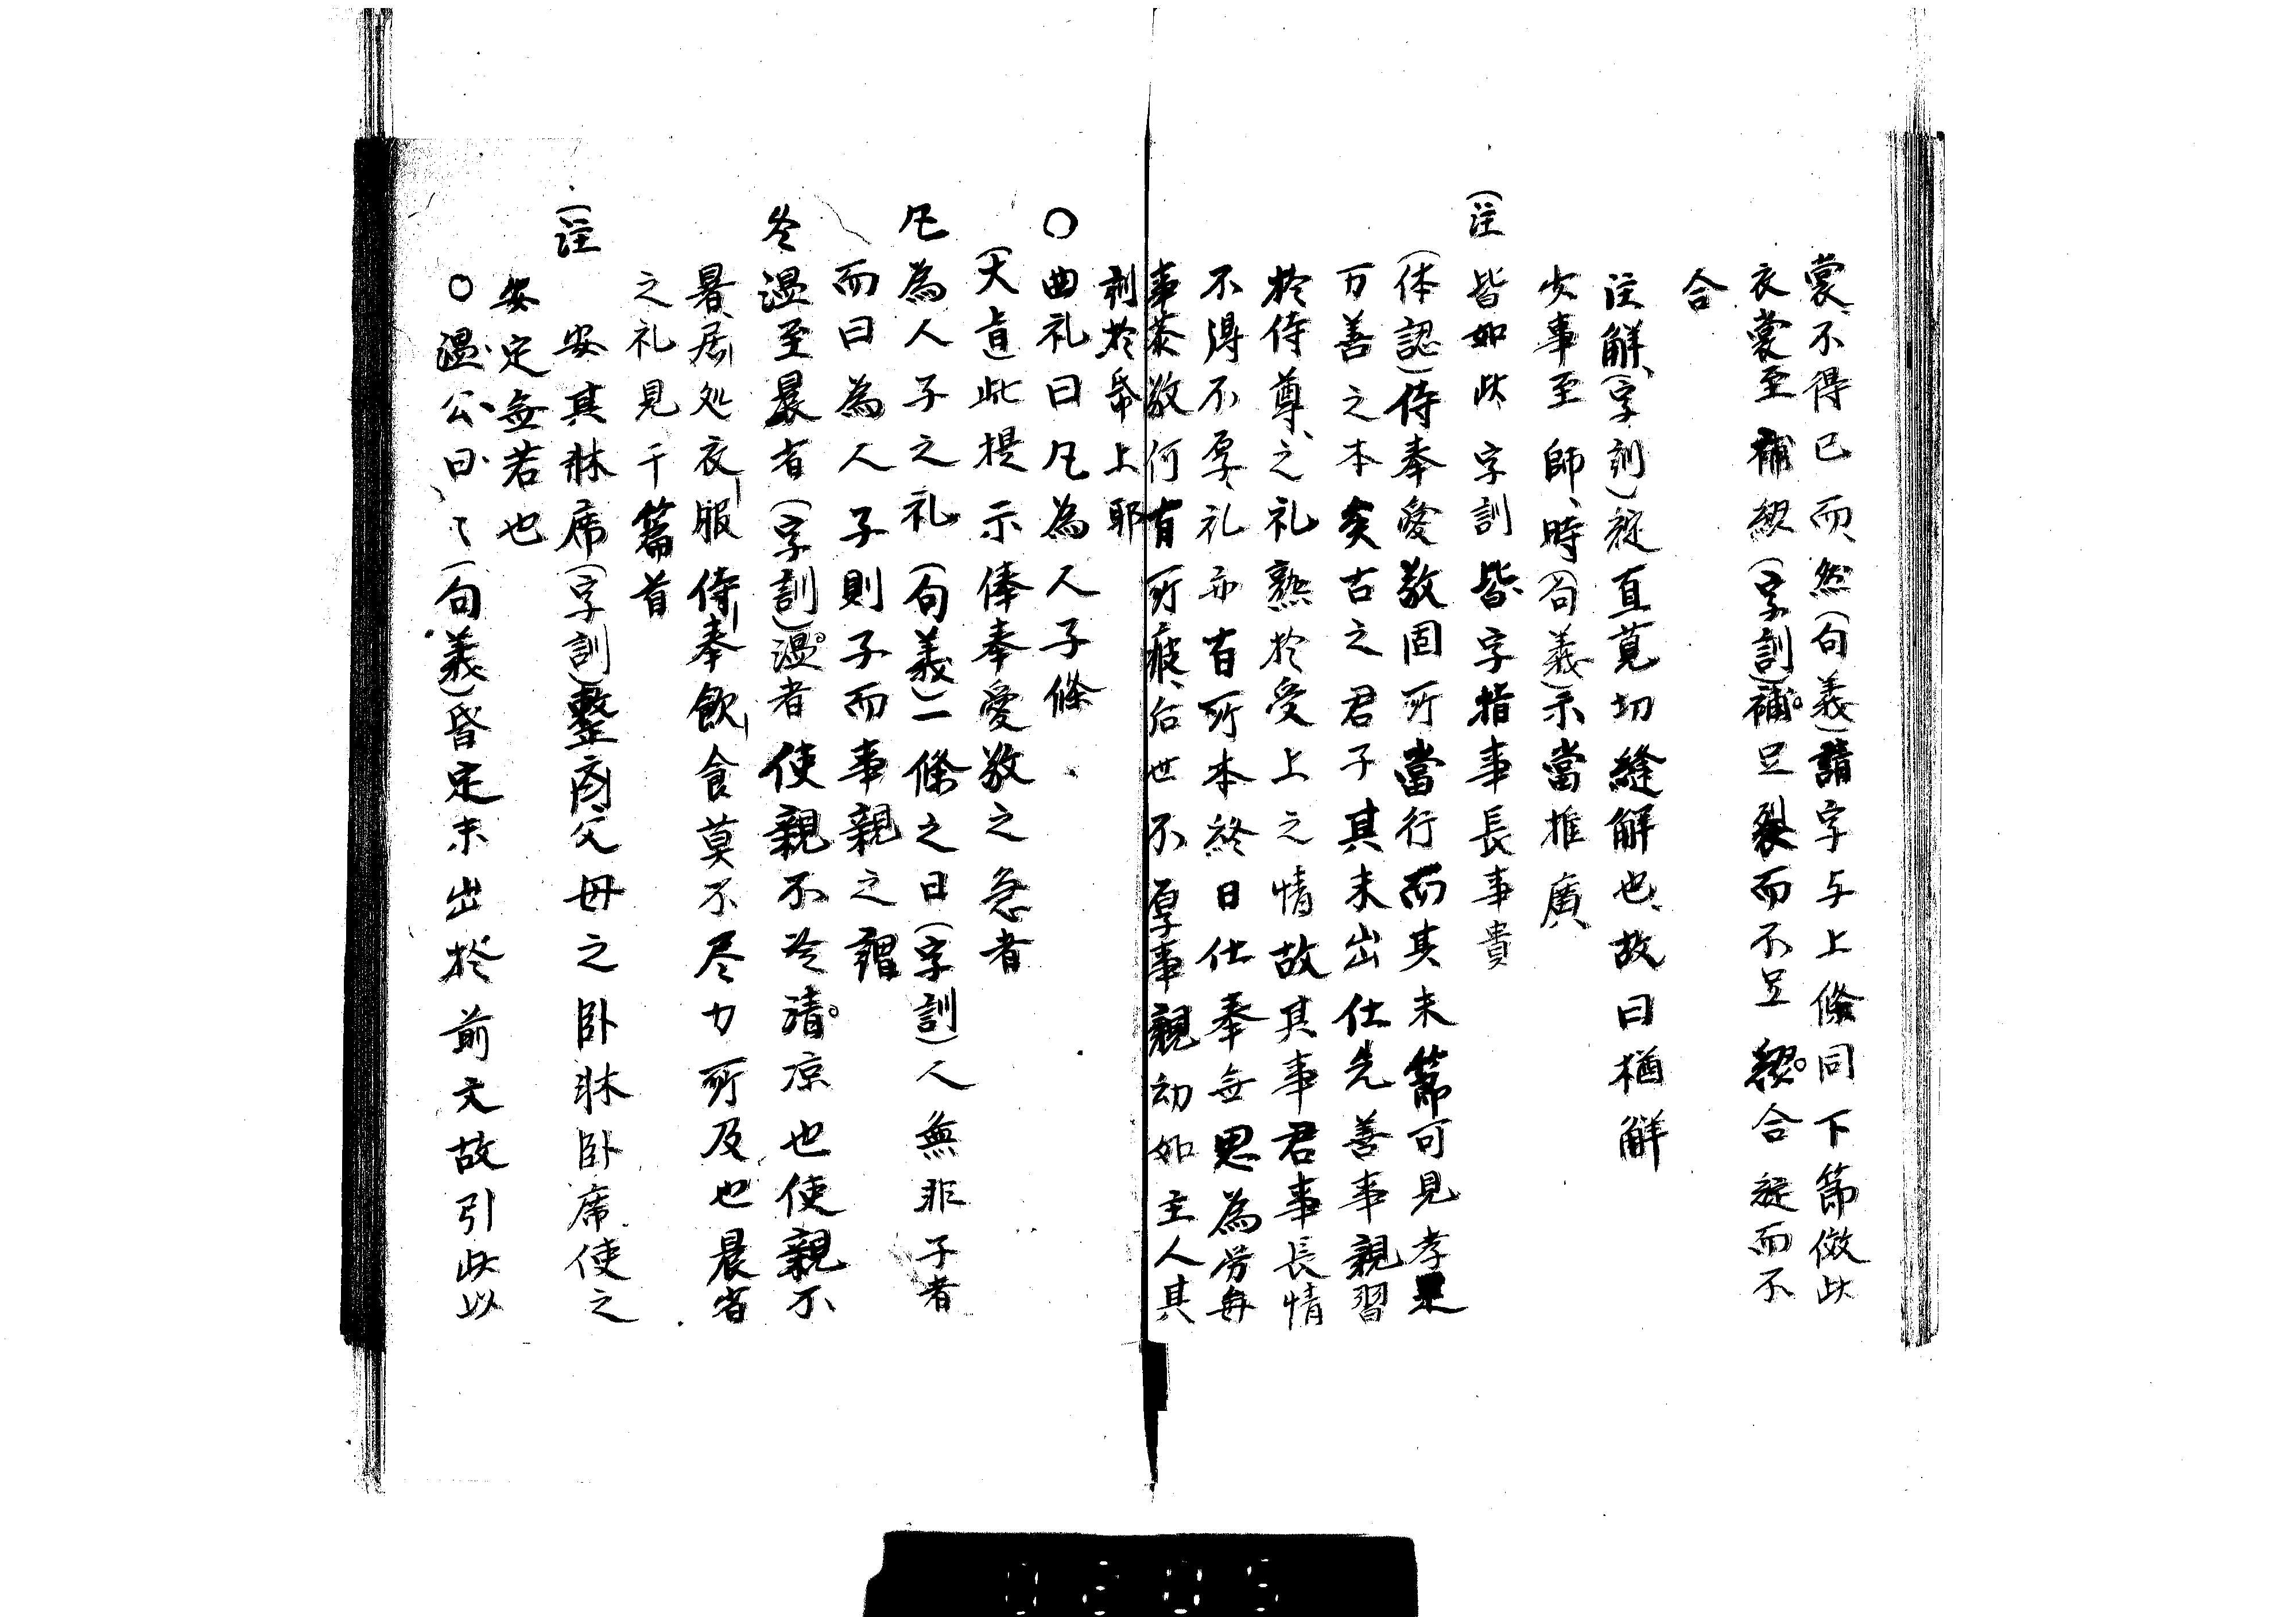 裳、不得已而、然(句義)請字与上條同下節倣此
衣裳至補綴(字訓)補。足裂而不足綴。合綻而不
合
注解、(字訓)綻直莧切縫解也、故曰猶解
少事至師、時(句義)示當推廣、
(注 皆如此字訓皆、字指事長事貴
(体認)侍奉愛敬固所當行而其末節可見孝是
万善之本矣古之君子其未出仕先善事親習
於侍尊、之礼熟於受上之情故其事君事長情
不得不厚礼亦有所本終日仕奉無思為労毎
事恭敬何有所疲、后世不厚事親幼如主人其
刺於爺上耶
○曲礼曰凡為人子條
(大旨)此提示俸奉愛敬之急者
凡為人子之礼(句義)二條之曰(字訓)人無非子者
而曰為人子則子而事親之謂
冬温至晨省(字訓)温。者使親不冷凊。凉也使親不
暑、居処衣服侍奉飲食莫不尽力所及也晨省
之礼見于篇首
(注 安其牀席(字訓)整斉父母之卧牀卧席使之
安定無若也
○温公曰、〻(句義)昏定未出於前文故引此以